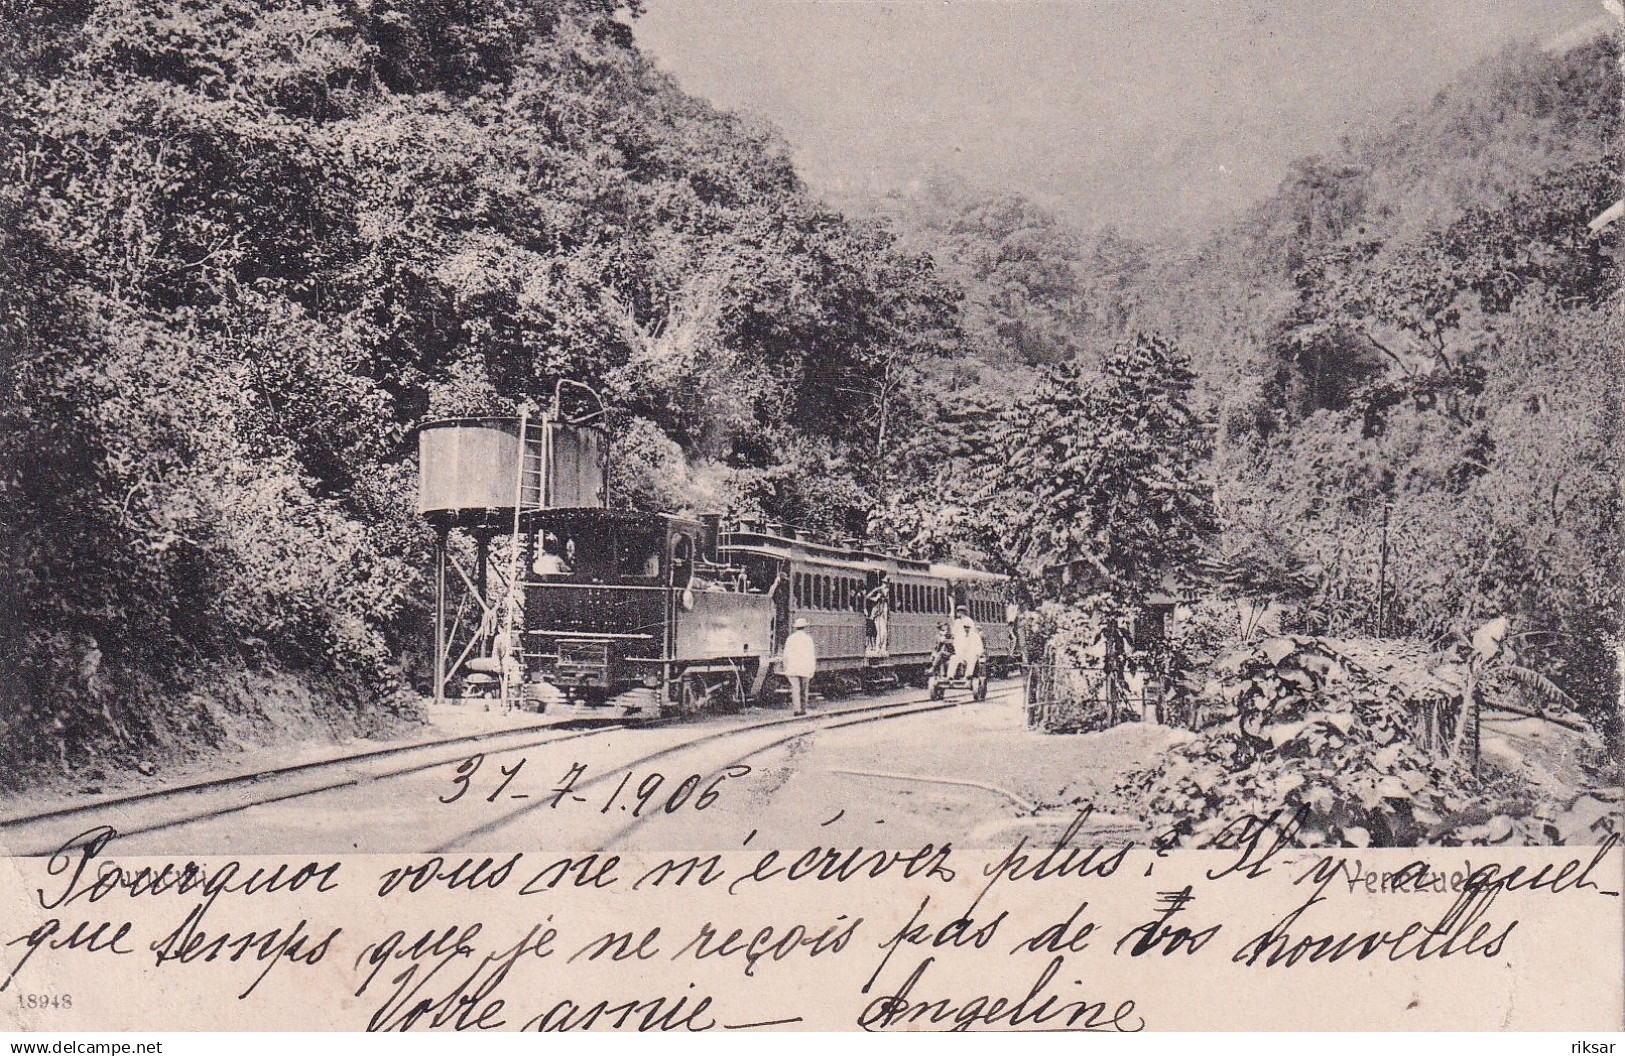 31-7-1906
Pourquoi vous ne m'écrivez plus? Il y a quel-
Venezuela
que temps que je ne reçois pas de vos nouvelles
18948
Votre amie — Angeline
https://www.delcampe.net
riksar